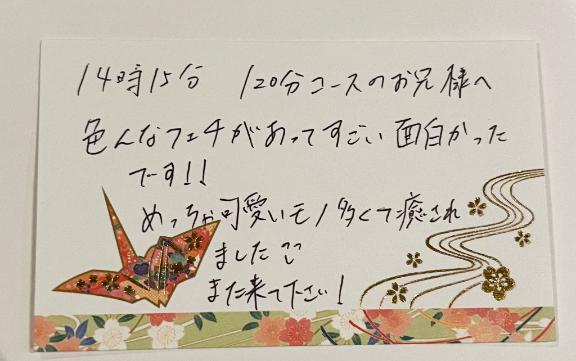 14時15分 120分コースのお兄様へ
色んなフェチがあってすごい面白かった
です!!
めっちゃ可愛いモノ多くて癒され
ました
また来て下さい!